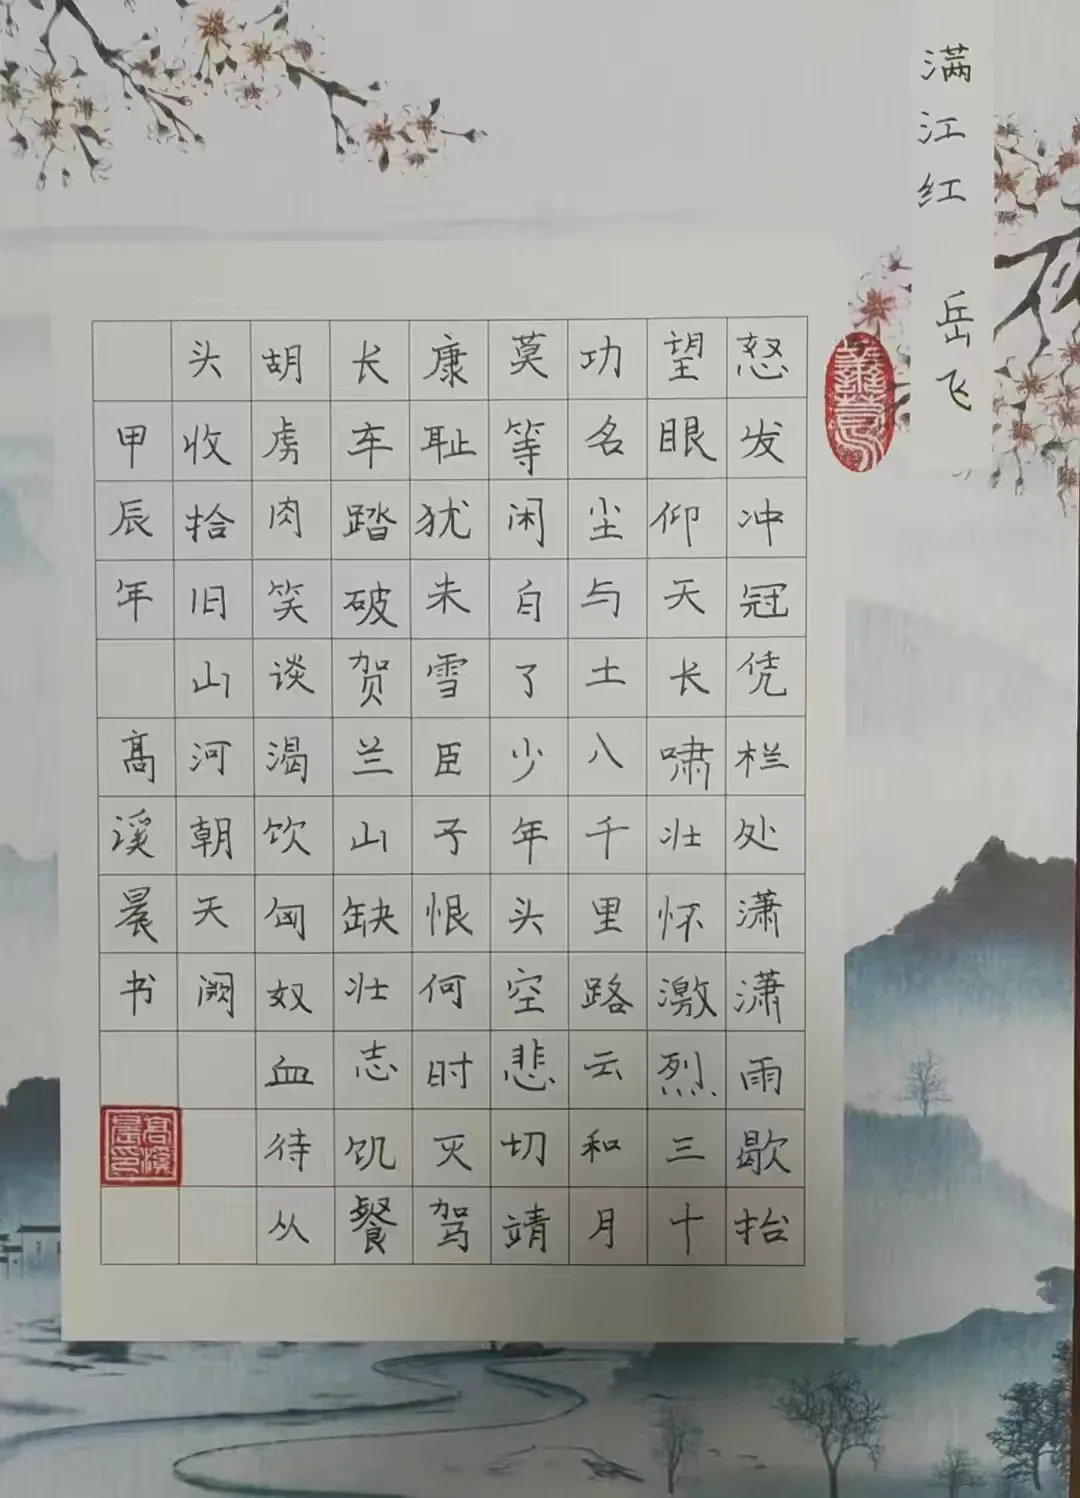 满江红 岳飞
怒发冲冠凭栏处潇潇雨歇抬
望眼仰天长啸壮怀激烈三十
功名尘与土八千里路云和月
莫等闲自了少年头空悲切靖
康耻犹未雪臣子恨何时灭驾
长车踏破贺兰山缺壮志饥餐
胡虏肉笑谈渴饮匈奴血待从
头收拾旧山河朝天阙
甲辰年 髙溪晨书